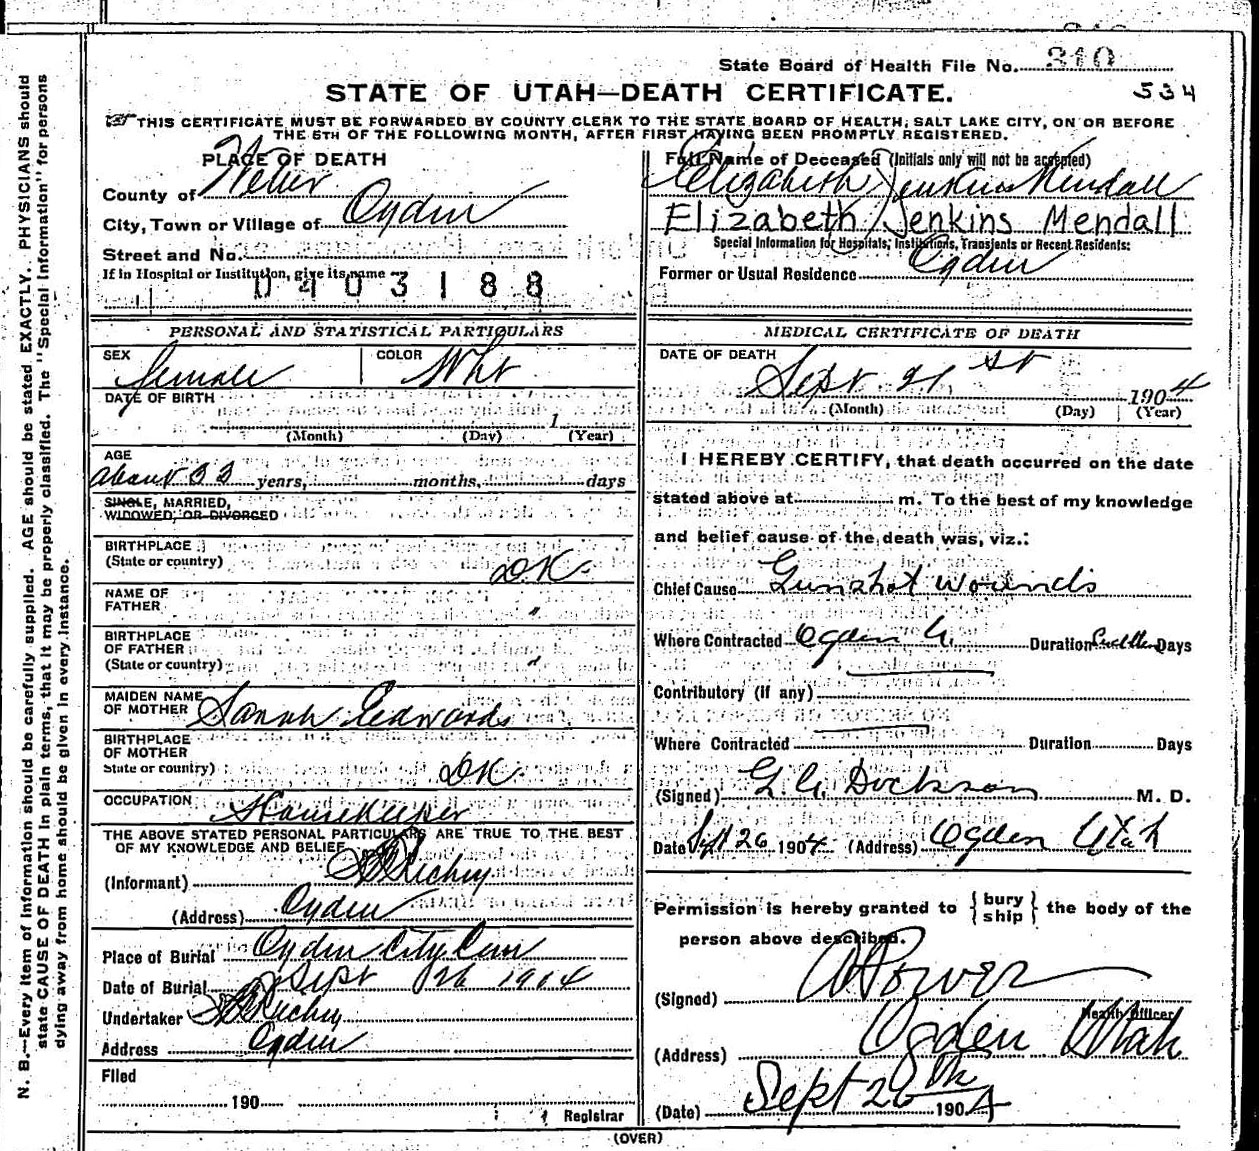 State Board of Health File No. 310
534
STATE OF UTAH—DEATH CERTIFICATE.
THIS CERTIFICATE MUST BE FORWARDED BY COUNTY CLERK TO THE STATE BOARD OF HEALTH, SALT LAKE CITY, ON OR BEFORE
THE 5TH OF THE FOLLOWING MONTH, AFTER FIRST HAVING BEEN PROMPTLY REGISTERED.
PLACE OF DEATH
County of Weber
City, Town or Village of Ogden
Street and No.
If in Hospital or Institution, give its name
0403188
Full Name of Deceased (Initials only will not be accepted)
Elizabeth Jenkins Mendall
Elizabeth Jenkins Mendall
Special Information for Hospitals, Institutions, Transients or Recent Residents:
Former or Usual Residence Ogden
PERSONAL AND STATISTICAL PARTICULARS
SEX Female
COLOR Wht
DATE OF BIRTH
1
(Month) (Day) (Year)
AGE
about 33 years, months, days
SINGLE, MARRIED,
WIDOWED, OR DIVORCED
BIRTHPLACE
(State or country) DK
NAME OF
FATHER "
BIRTHPLACE
OF FATHER
(State or country) "
MAIDEN NAME
OF MOTHER Sarah Edwards
BIRTHPLACE
OF MOTHER
State or country) DK
OCCUPATION Housekeeper
THE ABOVE STATED PERSONAL PARTICULARS ARE TRUE TO THE BEST
OF MY KNOWLEDGE AND BELIEF
(Informant) Richey
(Address) Ogden
Place of Burial Ogden City Cem
Date of Burial Sept 26 1904
Undertaker Richey
Address Ogden
Filed
190
Registrar
MEDICAL CERTIFICATE OF DEATH
DATE OF DEATH
Sept 21 st 1904
(Month) (Day) (Year)
I HEREBY CERTIFY, that death occurred on the date
stated above at m. To the best of my knowledge
and belief cause of the death was, viz.:
Chief Cause Gunshot wounds
Where Contracted Ogden U. Duration Sudden Days
Contributory (if any)
Where Contracted Duration Days
(Signed) M. D.
Date Sept 26 1904 (Address) Ogden Utah
Permission is hereby granted to { bury
ship } the body of the
person above described.
(Signed) Power
Health Officer
(Address) Ogden Utah
(Date) Sept 26th 1904
(OVER)
N. B.—Every item of information should be carefully supplied. AGE should be stated EXACTLY. PHYSICIANS should
state CAUSE OF DEATH in plain terms, that it may be properly classified. The "Special Information" for persons
dying away from home should be given in every instance.